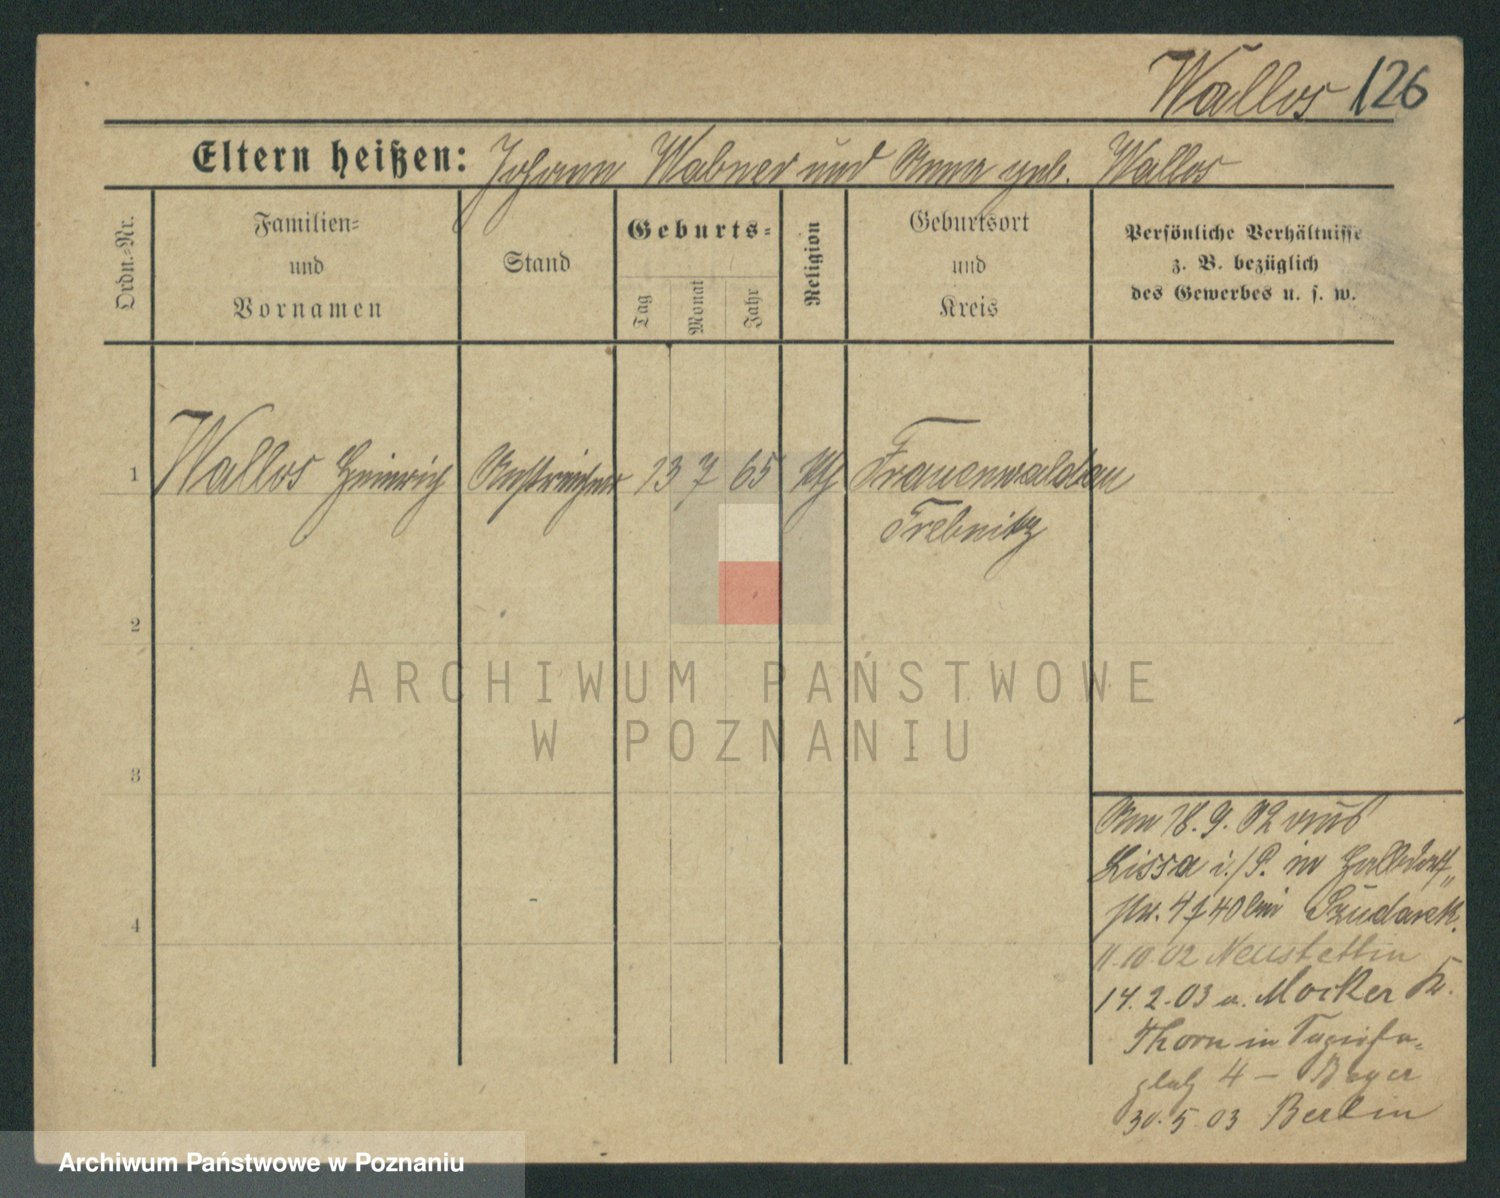 Wallos 126
Eltern heißen: Johann Wabner und Anna geb. Wallos
Ordn.-Nr.
Familien-
und
Vornamen
Stand
Geburts-
Tag
Monat
Jahr
Religion
Geburtsort
und
Kreis
Persönliche Verhältnisse
z. B. bezüglich
des Gewerbes u. s. w.
1 Wallos Heinrich Anstreicher 13 7 65 kth Frauenwaldau
Trebnitz
2
3
4
Am 18. 9. 02 aus
Lissa i./P. in Halbdorf-
str. 4 bei Szudarek.
11.10.02 Neustettin
14.2.03 a. Mocker Kr.
Thorn in Sapieha-
platz 4 – Beyer
30.5.03 Berlin
ARCHIWUM PAŃSTWOWE
W POZNANIU
Archiwum Państwowe w Poznaniu